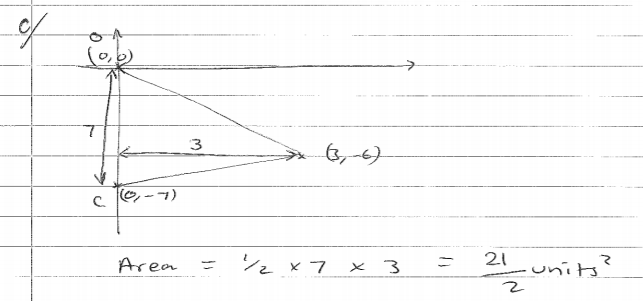 c/
O
(0,0)
7
3
(3,-6)
C (0,-7)
Area = 1/2 × 7 × 3 = 21/2 units²